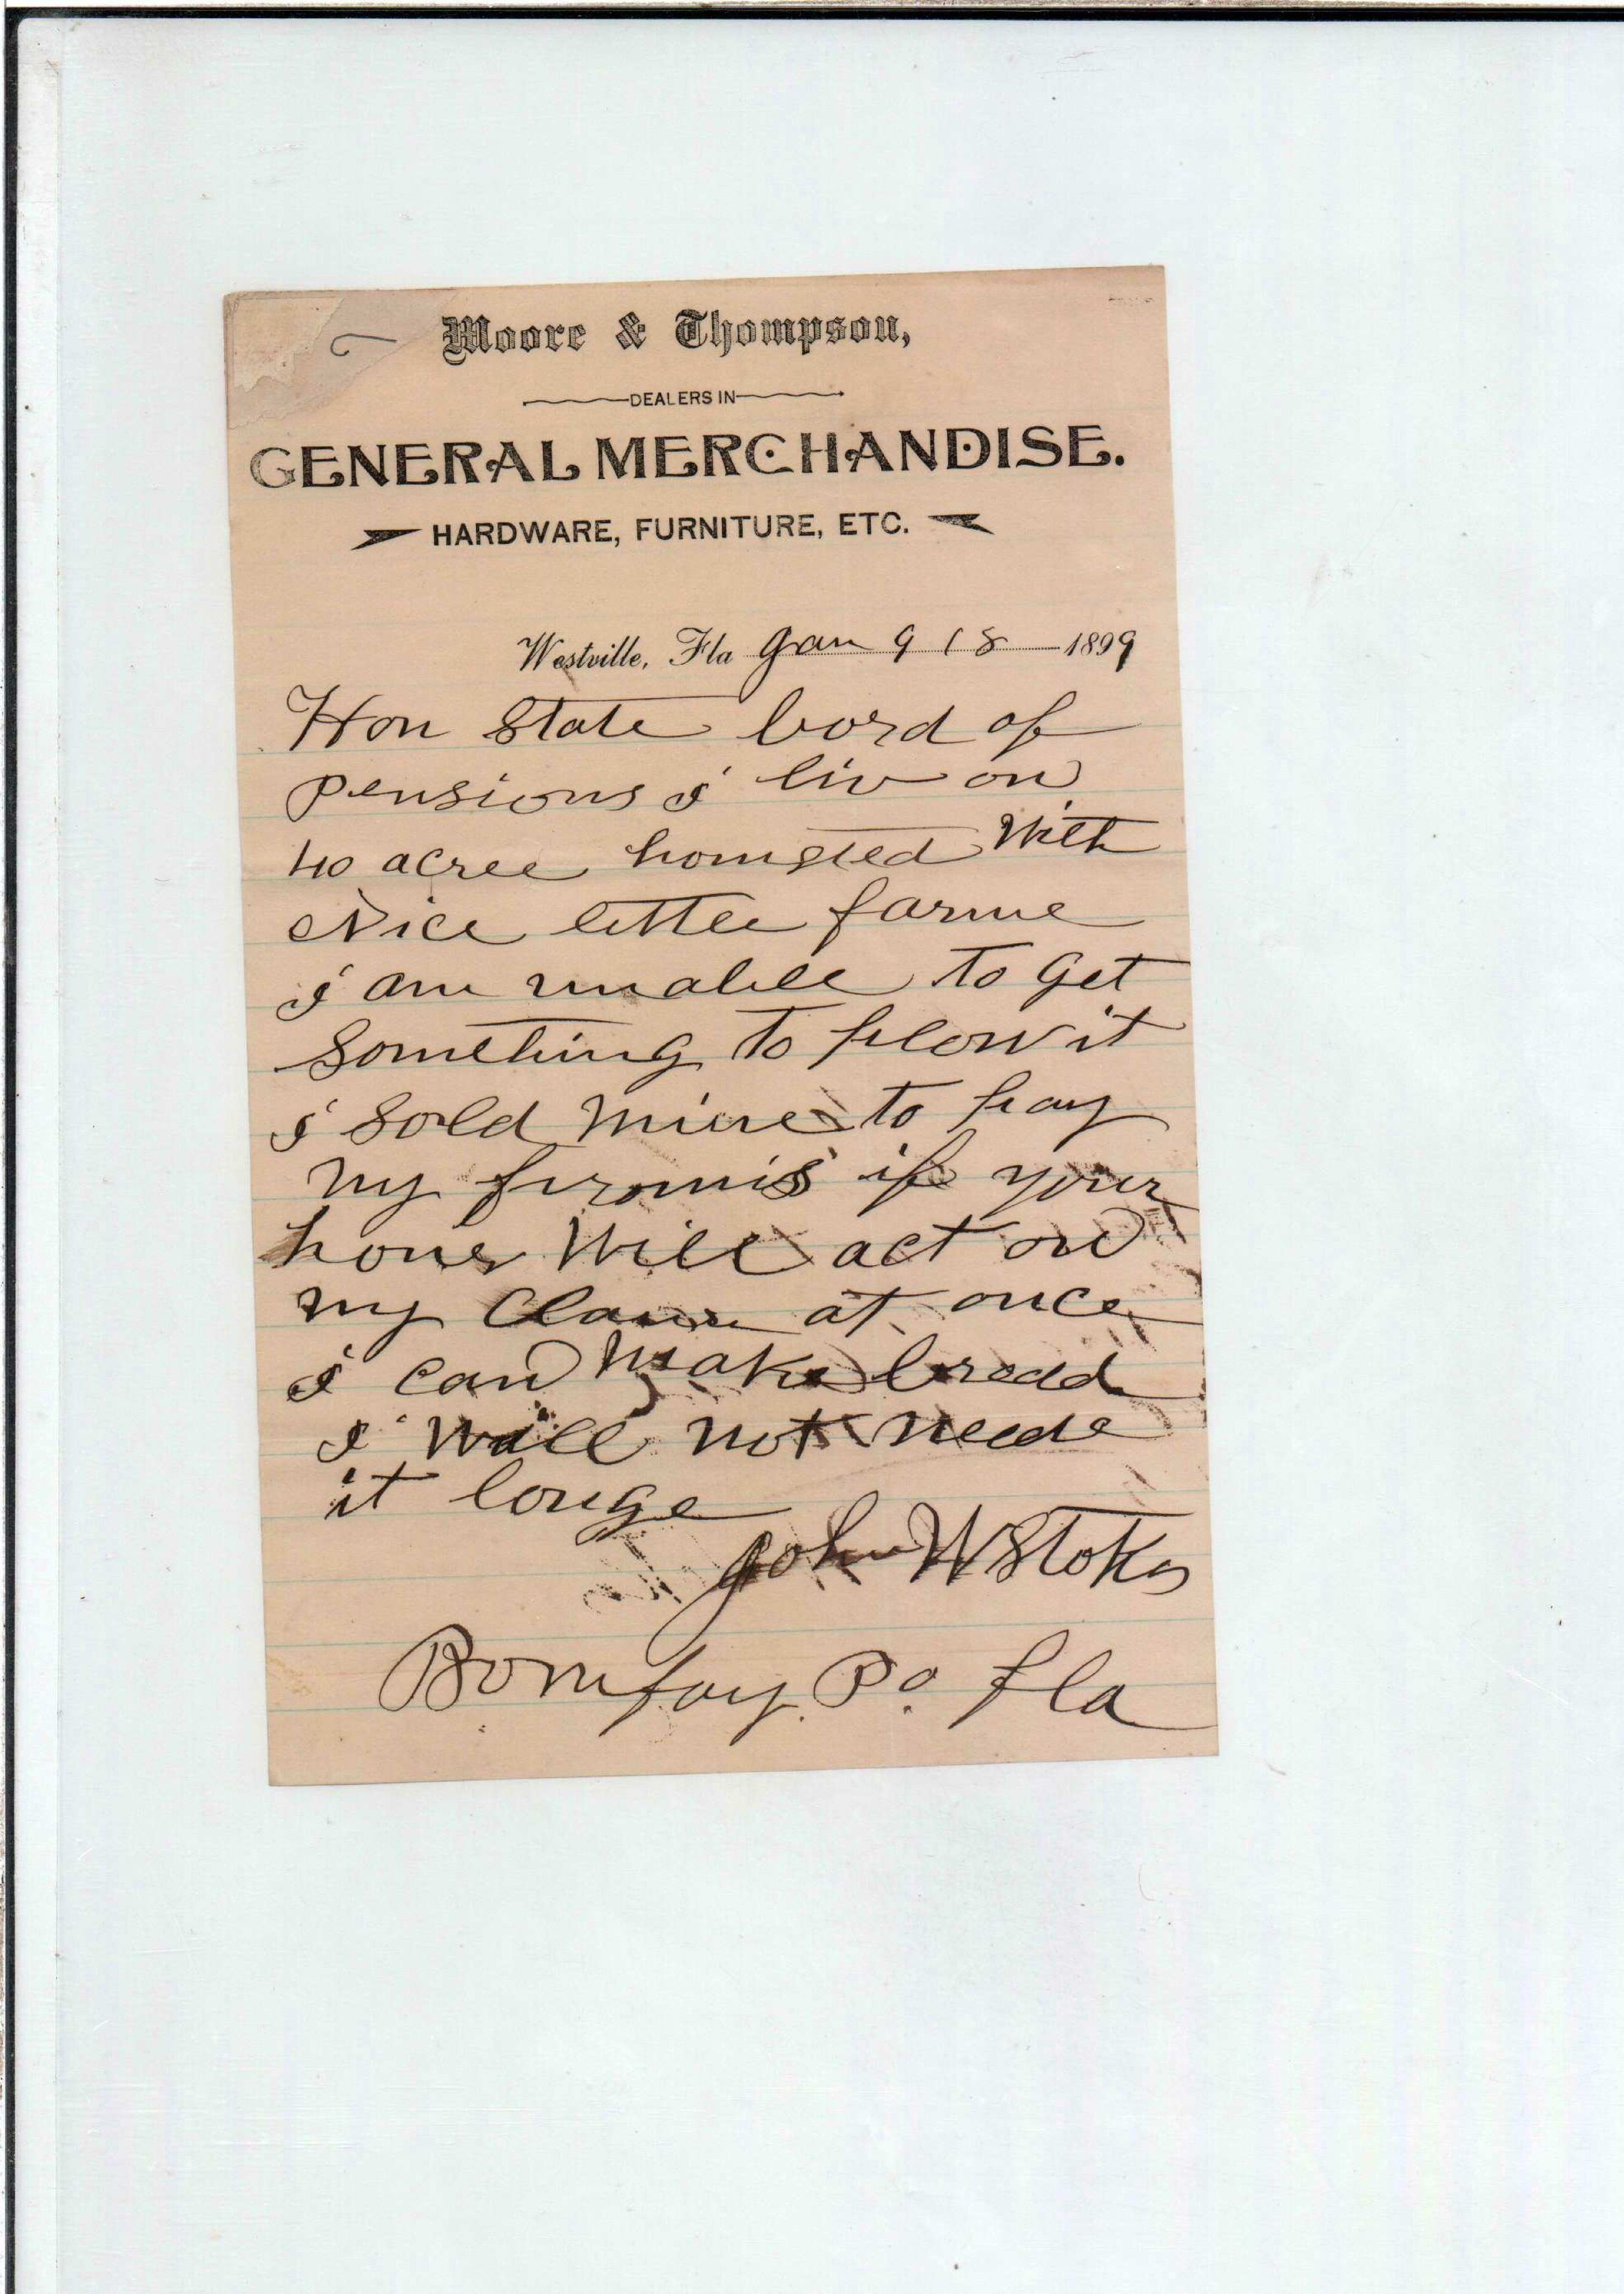 Moore & Thompson,
DEALERS IN
GENERAL MERCHANDISE.
HARDWARE, FURNITURE, ETC.
Westville, Fla Jan 9 18 1899
Hon State bord of
pensions i liv on
40 acree homsted With
Nice little farme
i am unable to get
Something to plow it
i Sold mine to pay
my promis if your
honer Will act on
my Claim at once
i can make bredd
i will not neede
it longe
John W Stokes
Bonifay. Po. fla